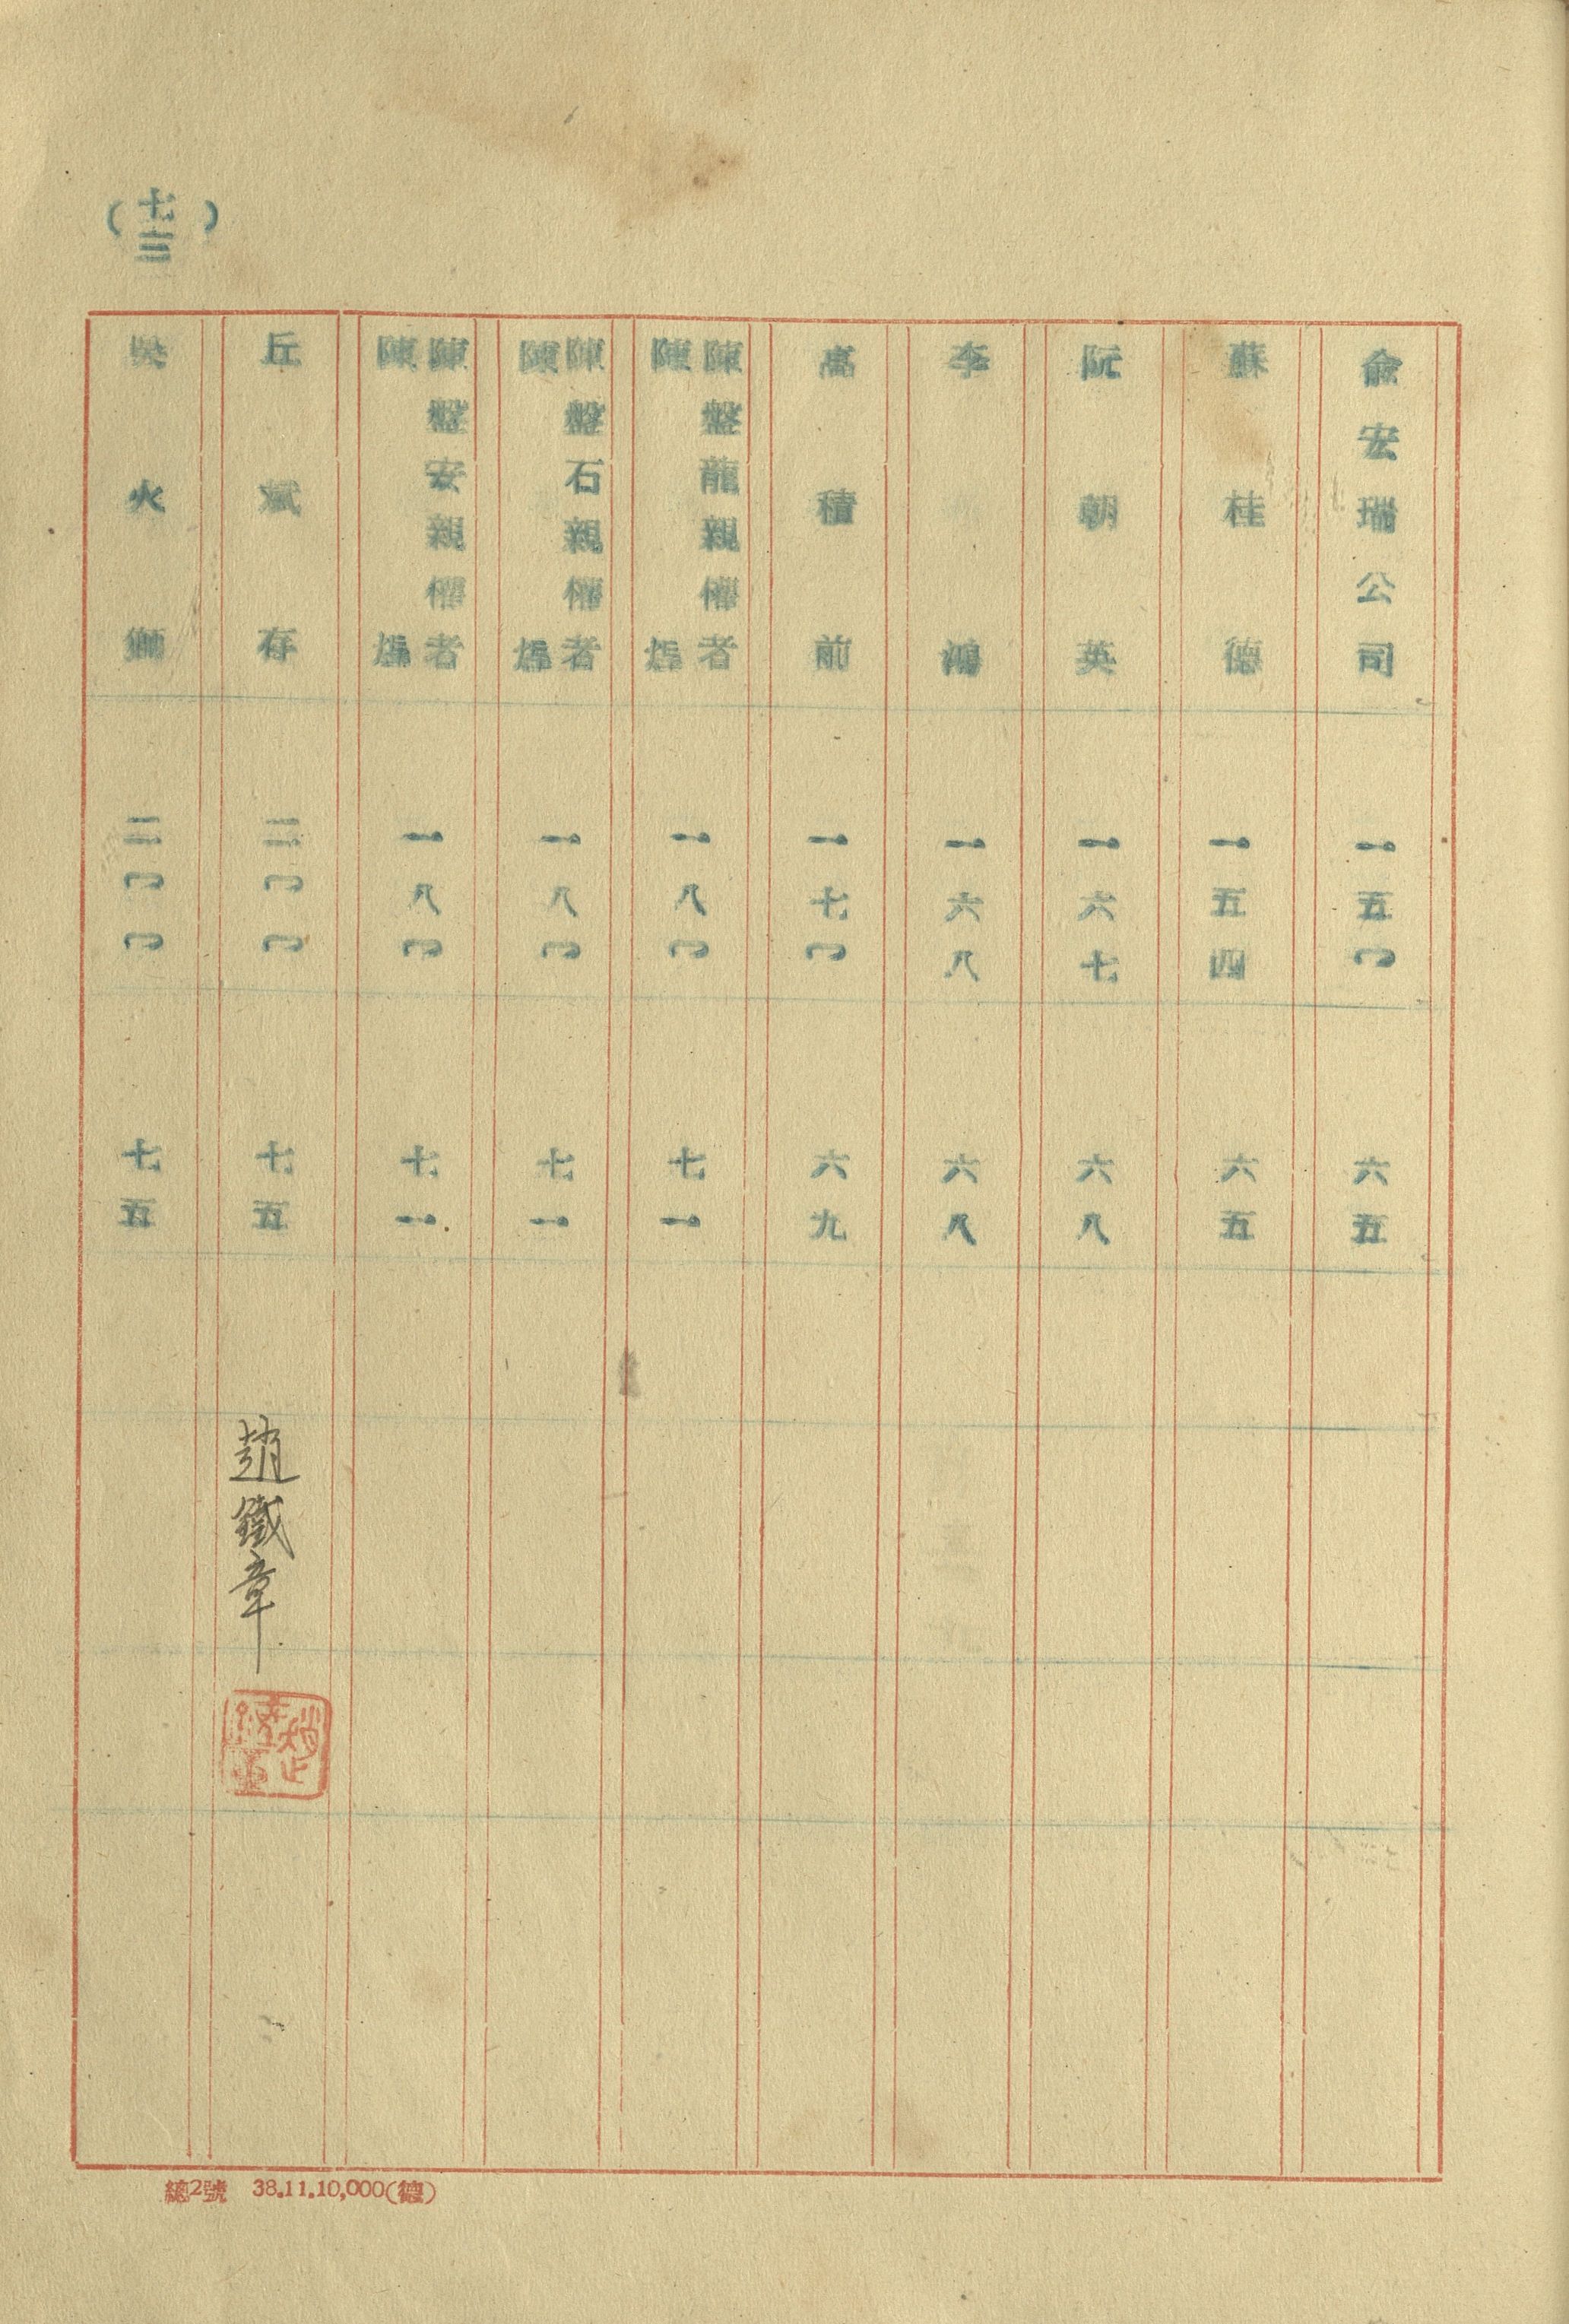 (七三)
俞宏瑞公司 一五〇 六五
蘇桂德 一五四 六五
阮朝英 一六七 六八
李鴻 一六八 六八
高積前 一七〇 六九
陳盤龍親權者陳 一八〇 七一
陳盤石親權者陳 一八〇 七一
陳盤安親權者陳 一八〇 七一
丘斌存 二〇〇 七五
吳火獅 二〇〇 七五
趙鐵章
總2號 38.11.10,000(德)